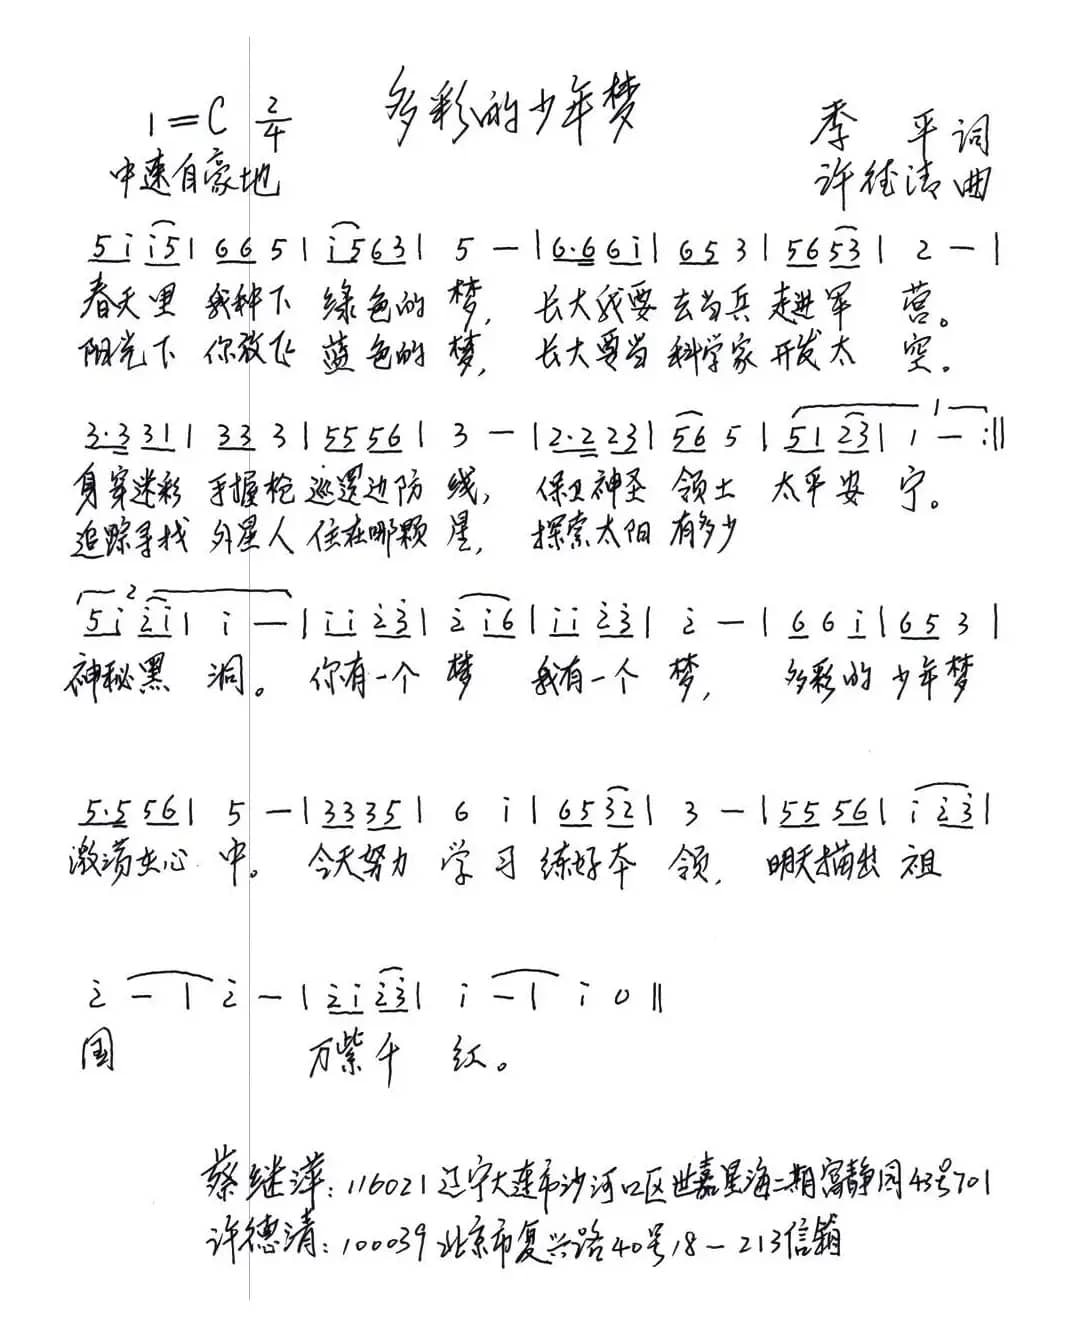 多彩的少年梦
1=C 2/4
季 平词
中速自豪地
许德清曲
5 i i 5 | 6 6 5 | i 5 6 3 | 5 — | 6· 6 6 i | 6 5 3 | 5 6 5 3 | 2 — |
春天里 我种下 绿色的 梦, 长大我要 去当兵 走进军 营。
阳光下 你放飞 蓝色的 梦, 长大要当 科学家 开发太 空。
3· 3 3 1 | 3 3 3 | 5 5 5 6 | 3 — | 2· 2 2 3 | 5 6 5 | 1 5 1 2 3 | 1 — :||
身穿迷彩 手握枪 巡逻边防 线, 保卫神圣 领土 太平安 宁。
追踪寻找 外星人 住在哪颗 星, 探索太阳 有多少
2 5 i 2 i | i — | i i 2 3 | 2 i 6 | i i 2 3 | 2 — | 6 6 i | 6 5 3 |
神秘黑 洞。 你有一个 梦 我有一个 梦, 多彩的 少年梦
5· 5 5 6 | 5 — | 3 3 3 5 | 6 i | 6 5 3 2 | 3 — | 5 5 5 6 | i 2 3 |
激荡在心 中。 今天努力 学习 练好本 领, 明天描出 祖
2 — | 2 — | 2 i 2 3 | i — | i 0 ||
国 万紫千 红。
蔡继萍: 116021 辽宁大连市沙河口区世嘉星海二期富静园43号701
许德清: 100039 北京市复兴路40号18-213信箱